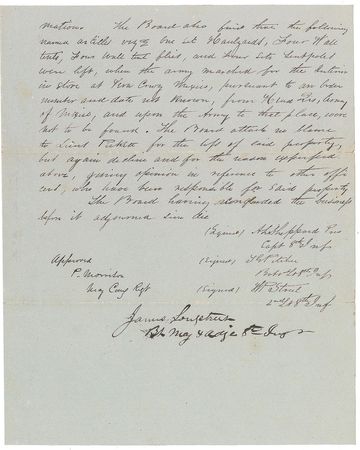 mations. The Board also find that the following
named articles viz one set Haulyards, Four Wall
tents, Four Wall tent flies, and Four Sets tentpoles
were left, when the army marched for the interior
in store at Vera Cruz Mexico, pursuant to an order
number and date not known, from Head Qrs, Army
of Mexico, and upon the Army to that place, were
not to be found. The Board attach no blame
to Lieut Pickett for the loss of said property,
but again decline and for the reason expressed
above, giving opinion in reference to other offi
cers, who have been responsible for said property
The Board having concluded the business
before it adjourned sine die
(Signed) Sheppard
Capt 8th Inf
Approved (Signed) Pitcher
P. Morrison Bvt 8th Inf
Maj Comg Regt (Signed) Street
2nd Lt 8th Inf
James Longstreet
Bt Maj & Adjt 8th Inf